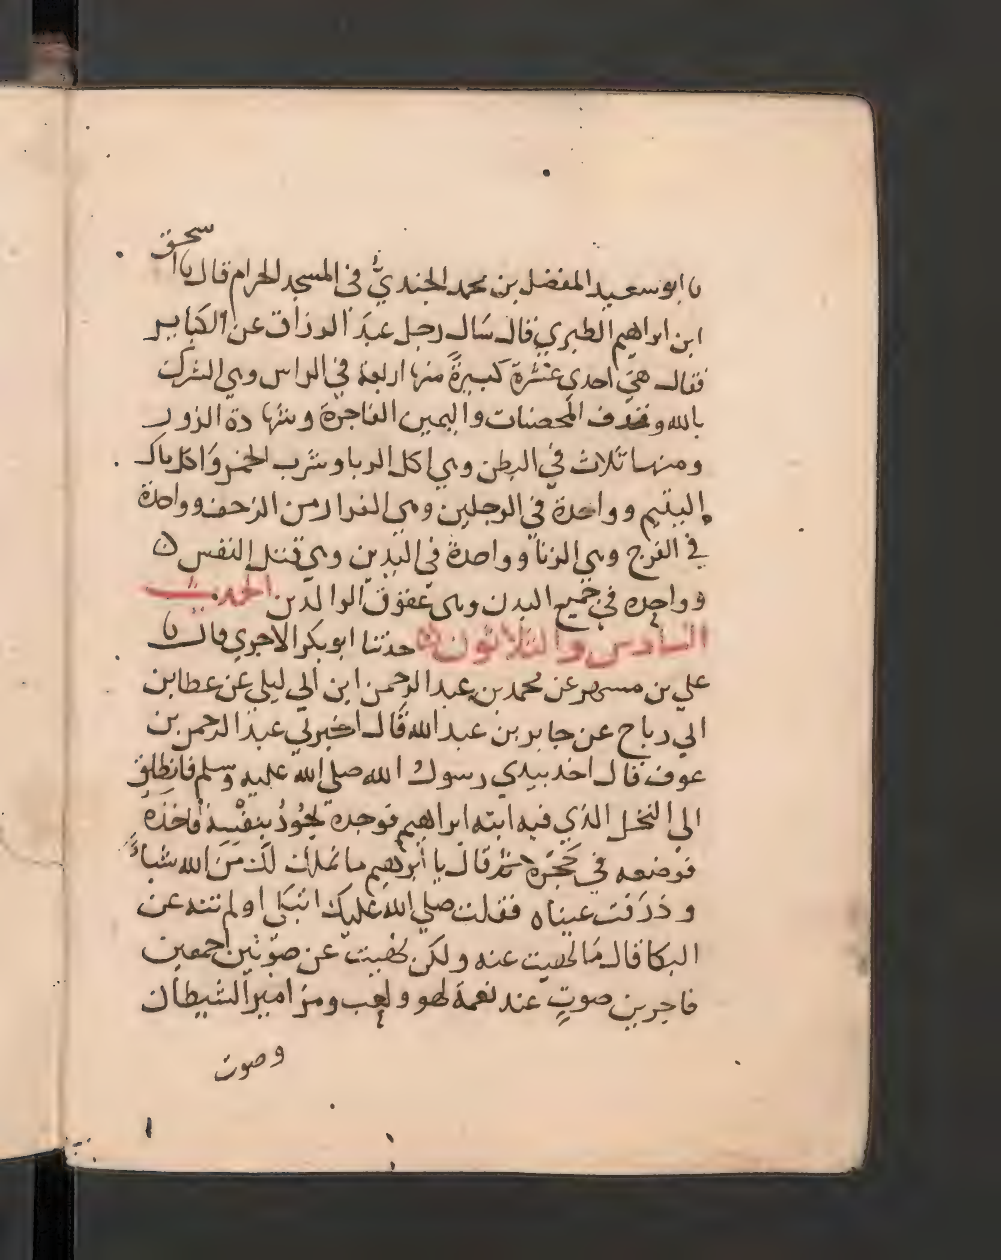 نا ابو سعيد المفضل بن محمد الجندي في المسجد الحرام قال نا اسحق
ابن ابراهيم الطبري قال سال رجل عبد الرزاق عن الكباير
فقال هي احدي عشرة كبيرة منها اربعة في الراس وهي الشرك
بالله وقذف المحصنات واليمين الفاجرة وشهادة الزور
ومنها ثلاث في البطن وهي اكل الربا وشرب الخمر واكل مال
اليتيم وواحدة في الرجلين وهي الفرار من الزحف وواحدة
في الفرج وهي الزنا وواحدة في اليدين وهي قتل النفس
وواحده في جميع البدن وهي عقوق الوالدين الحديث
السادس والثلاثون حدثنا ابو بكر الاجري قال نا
علي بن مسهر عن محمد بن عبد الرحمن ابن ابي ليلي عن عطا بن
ابي رباح عن جابر بن عبد الله قال اخبرني عبد الرحمن بن
عوف قال اخد بيدي رسول الله صلي الله عليه وسلم فانطلق
الي النخل الذي فيه ابنه ابراهيم فوجده يجود بنفسه فاخذه
فوضعه في حجره ثم قال يا ابرهيم ما نملك لك من الله شيا
وذرفت عيناه فقلت صلي الله عليك اتبكي اولم تنه عن
البكا قال ما نهيت عنه ولكن نهيت عن صوتين احمقين
فاجرين صوت عند نعمة لهو ولعب ومزامير الشيطان
وصوت